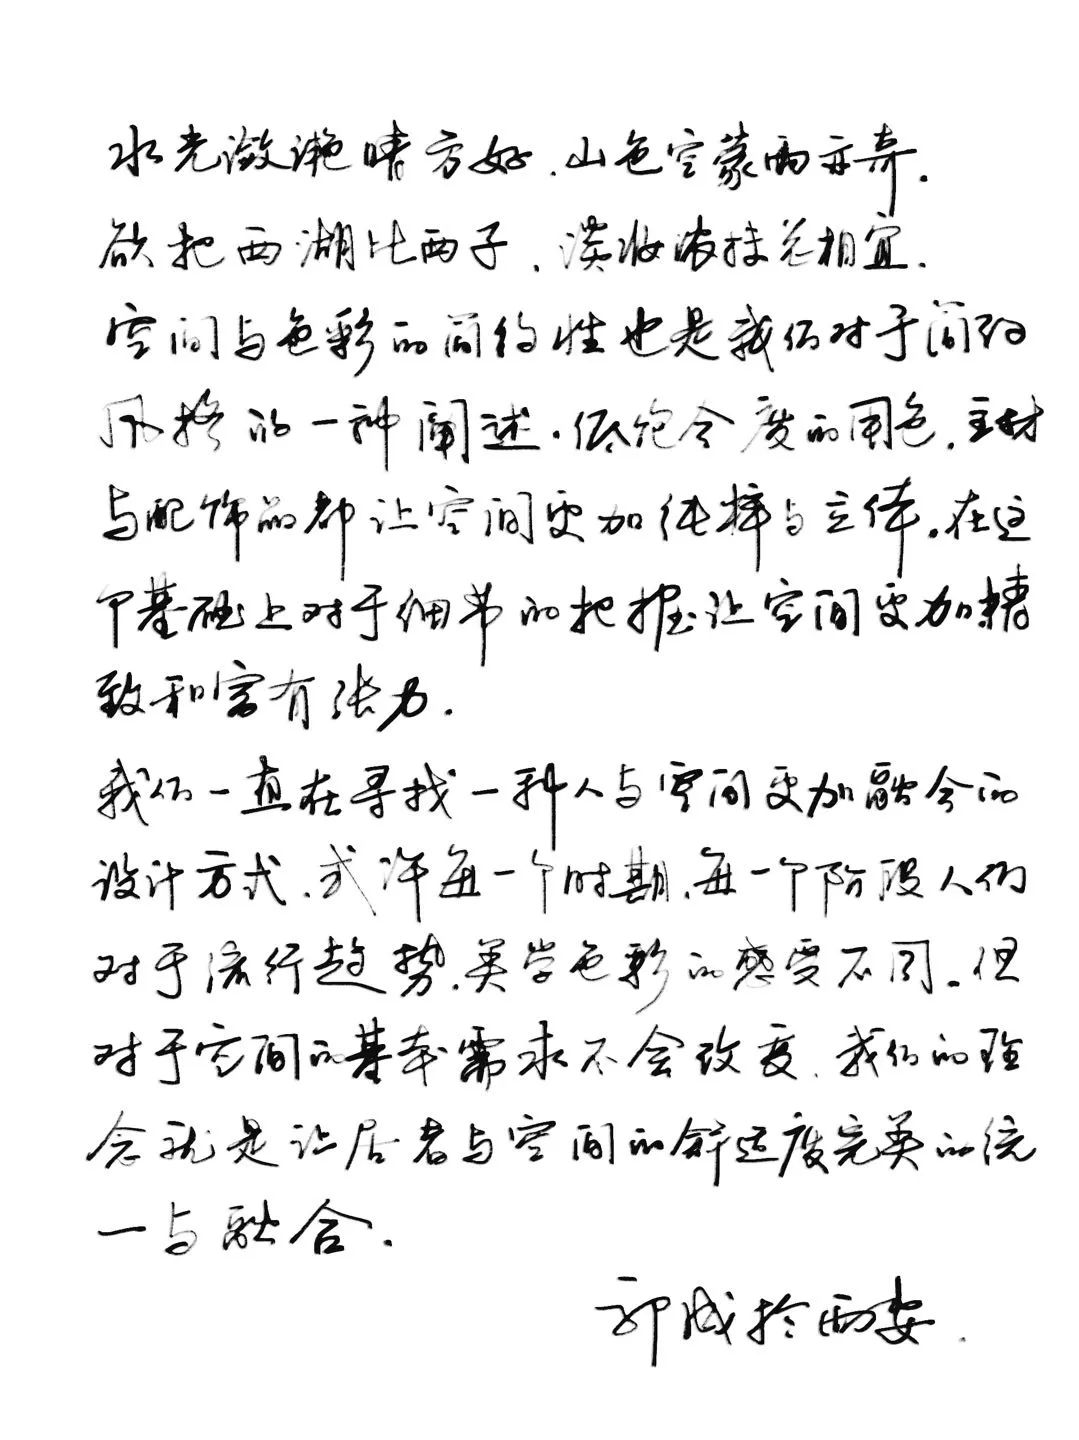 水光潋滟晴方好.山色空蒙雨亦奇.
欲把西湖比西子.淡妆浓抹总相宜.
空间与色彩的简约性也是我们对于简约
风格的一种阐述.低饱合度的用色.主材
与配饰品都让空间更加纯粹与立体.在这
个基础上对于细节的把握让空间更加精
致和富有张力.
我们一直在寻找一种人与空间更加融合的
设计方式.或许每一个时期.每一个阶段人们
对于流行趋势.美学色彩的感受不同.但
对于空间的基本需求不会改变.我们的理
念就是让居者与空间的舒适度完美的统
一与融合.
郭成於西安.